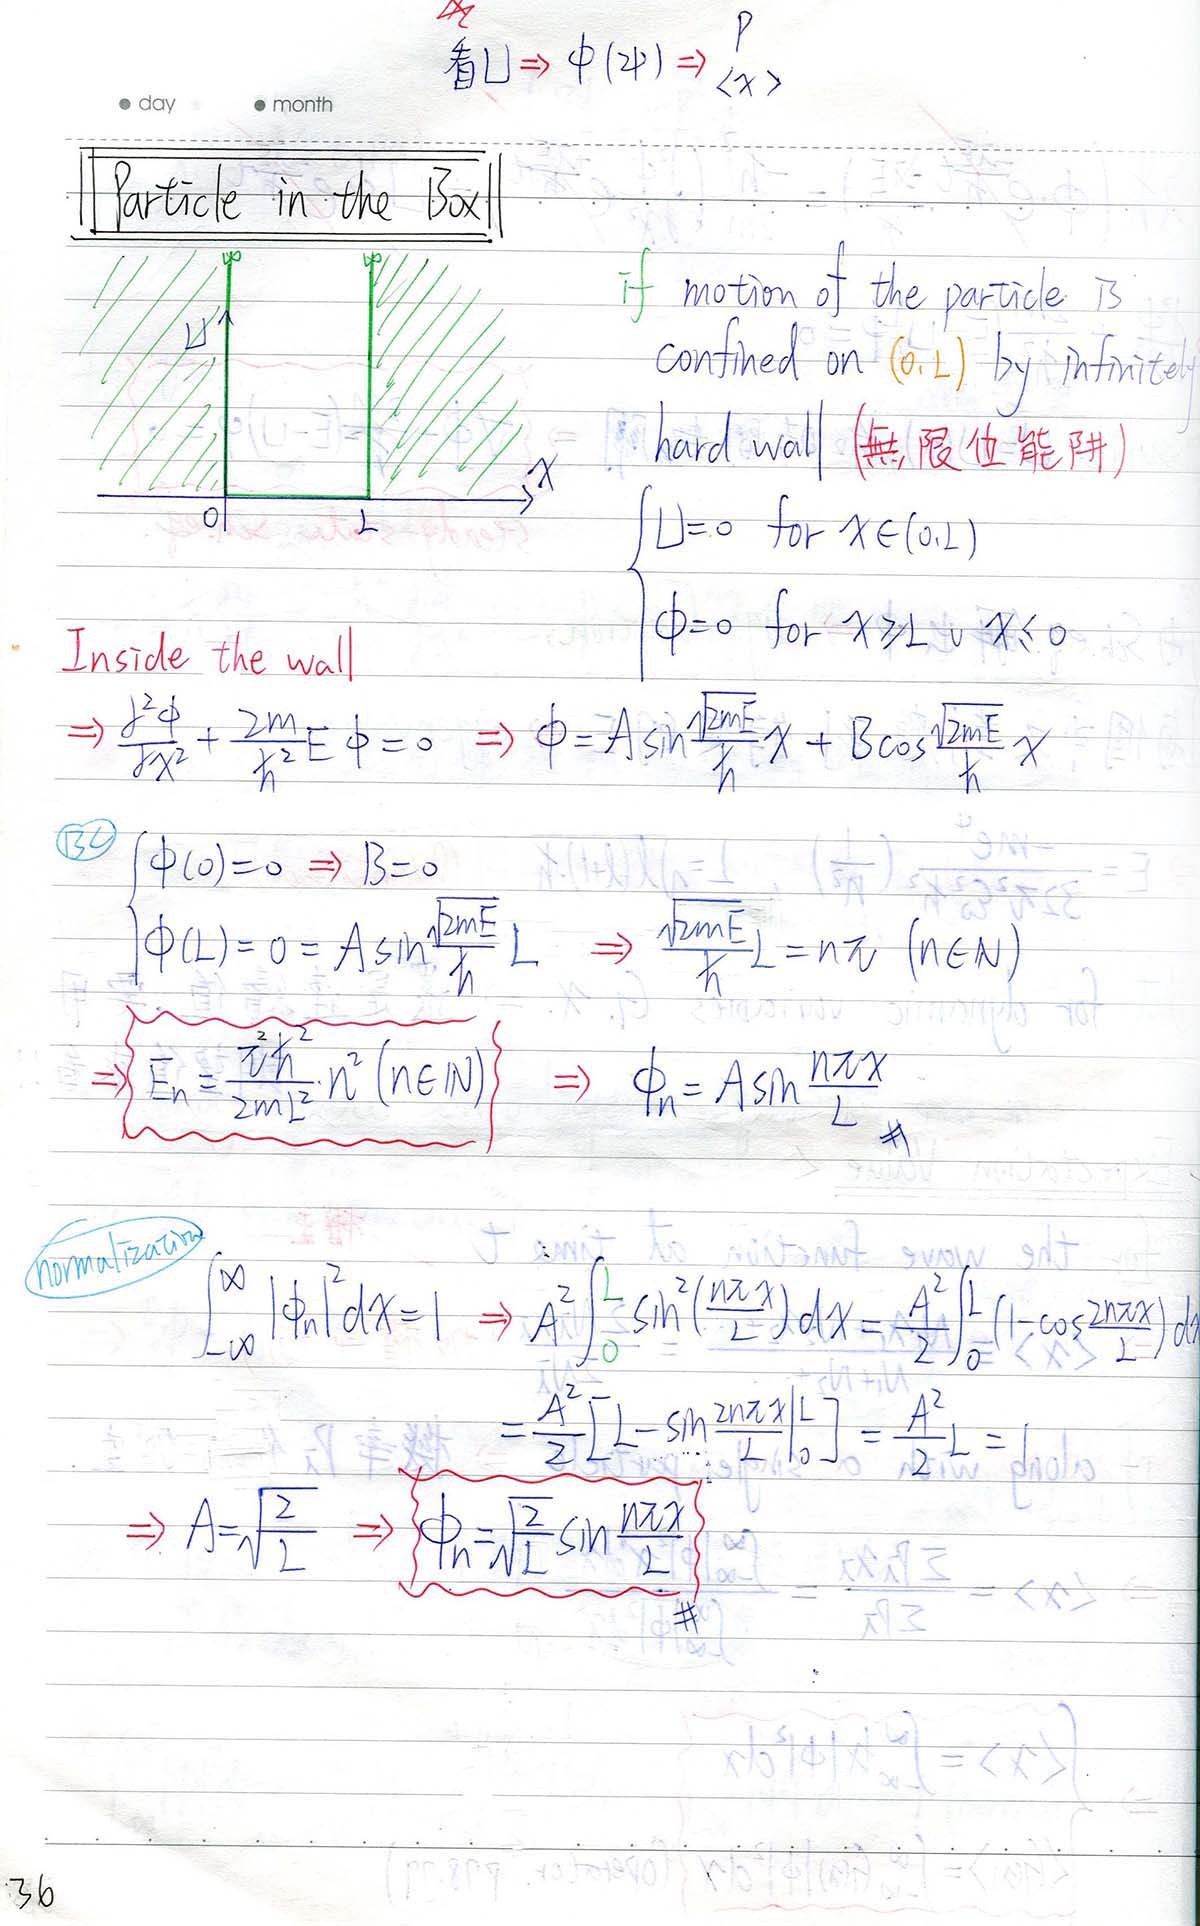 看U ⇒ φ(ψ) ⇒ P
<x>
day month
Particle in the Box
if motion of the particle is
confined on (0.L) by infinitely
hard wall (無限位能阱)
U
0 L x
U=0 for x∈(0.L)
φ=0 for x≥L ∪ x≤0
Inside the wall
⇒ d²φ/dx² + 2m/ħ² E φ = 0 ⇒ φ = A sin √2mE/ħ x + B cos √2mE/ħ x
BC
φ(0)=0 ⇒ B=0
φ(L)=0=A sin √2mE/ħ L ⇒ √2mE/ħ L = nπ (n∈N)
⇒ En = π²ħ²/2mL² · n² (n∈N) ⇒ φn = A sin nπx/L #
normalization
∫_-∞^∞ |φn|² dx = 1 ⇒ A² ∫_0^L sin²(nπx/L) dx = A²/2 ∫_0^L (1-cos 2nπx/L) dx
= A²/2 [L - sin 2nπx/L |_0^L] = A²/2 L = 1
⇒ A = √2/L ⇒ φn = √2/L sin nπx/L #
36